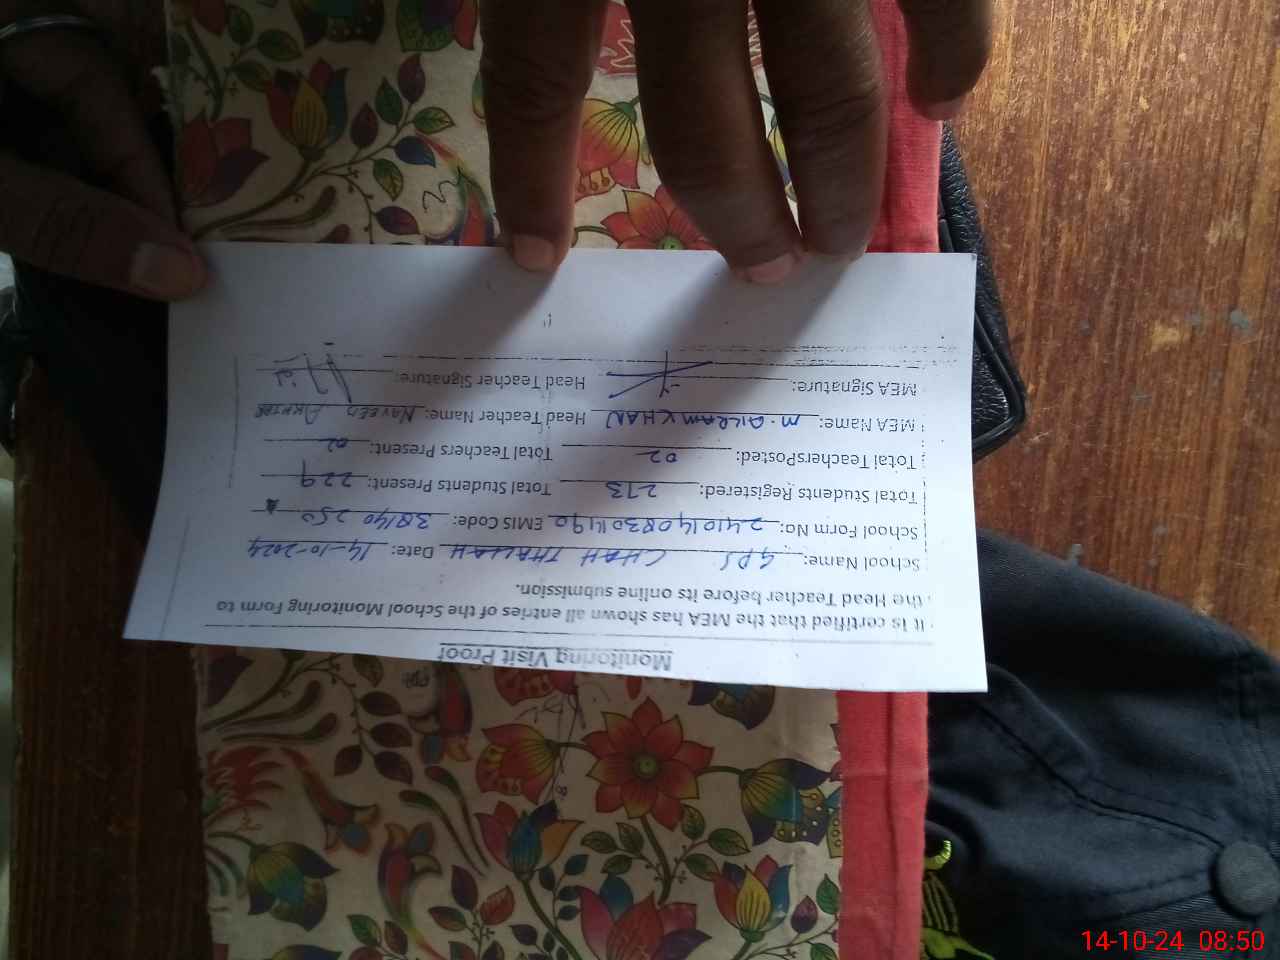 Monitoring Visit Proof
It is certified that the MEA has shown all entries of the School Monitoring Form to
the Head Teacher before its online submission.
School Name: GPS CHAH THALLAH Date: 14-10-2024
School Form No: 241014083014190 EMIS Code: 38140 250
Total Students Registered: 273 Total Students Present: 229
Total Teachers Posted: 02 Total Teachers Present: 02
MEA Name: M. AKRAM KHAN Head Teacher Name: NAVEED AKHTAR
MEA Signature: Head Teacher Signature:
14-10-24 08:50